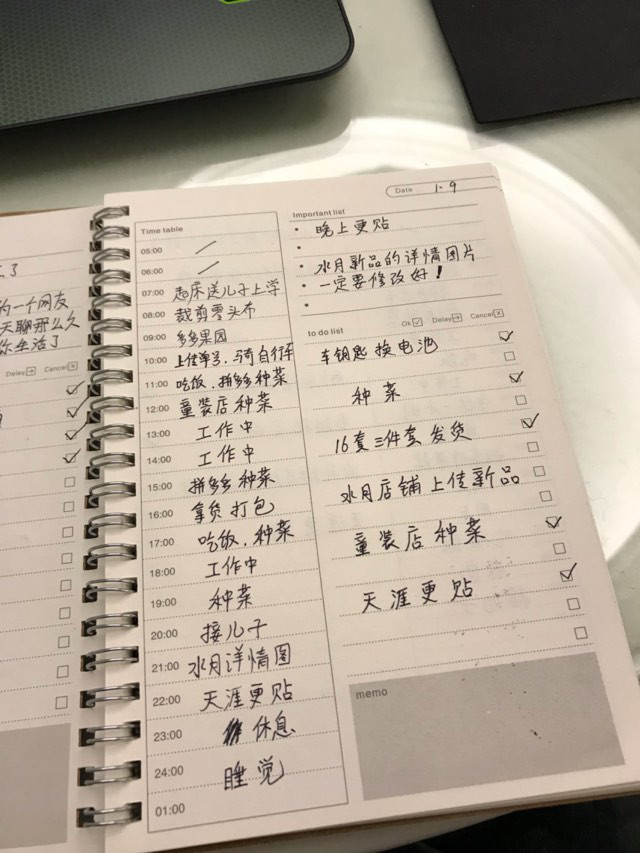 了
的一个网友
天聊那么久
你生活了
Delay Cancel
Date 1.9
Time table
05:00 /
06:00 /
07:00 起床送儿子上学
08:00 裁剪零头布
09:00 多多果园
10:00 上佳单号,骑自行车
11:00 吃饭.拼多多种菜
12:00 童装店种菜
13:00 工作中
14:00 工作中
15:00 拼多多种菜
16:00 拿货打包
17:00 吃饭.种菜
18:00 工作中
19:00 种菜
20:00 接儿子
21:00 水月详情图
22:00 天涯更贴
23:00 休息
24:00 睡觉
01:00
Important list
晚上更贴
水月新品的详情图片
一定要修改好!
to do list
Ok Delay Cancel
车钥匙换电池
种菜
16套三件套发货
水月店铺上佳新品
童装店种菜
天涯更贴
memo